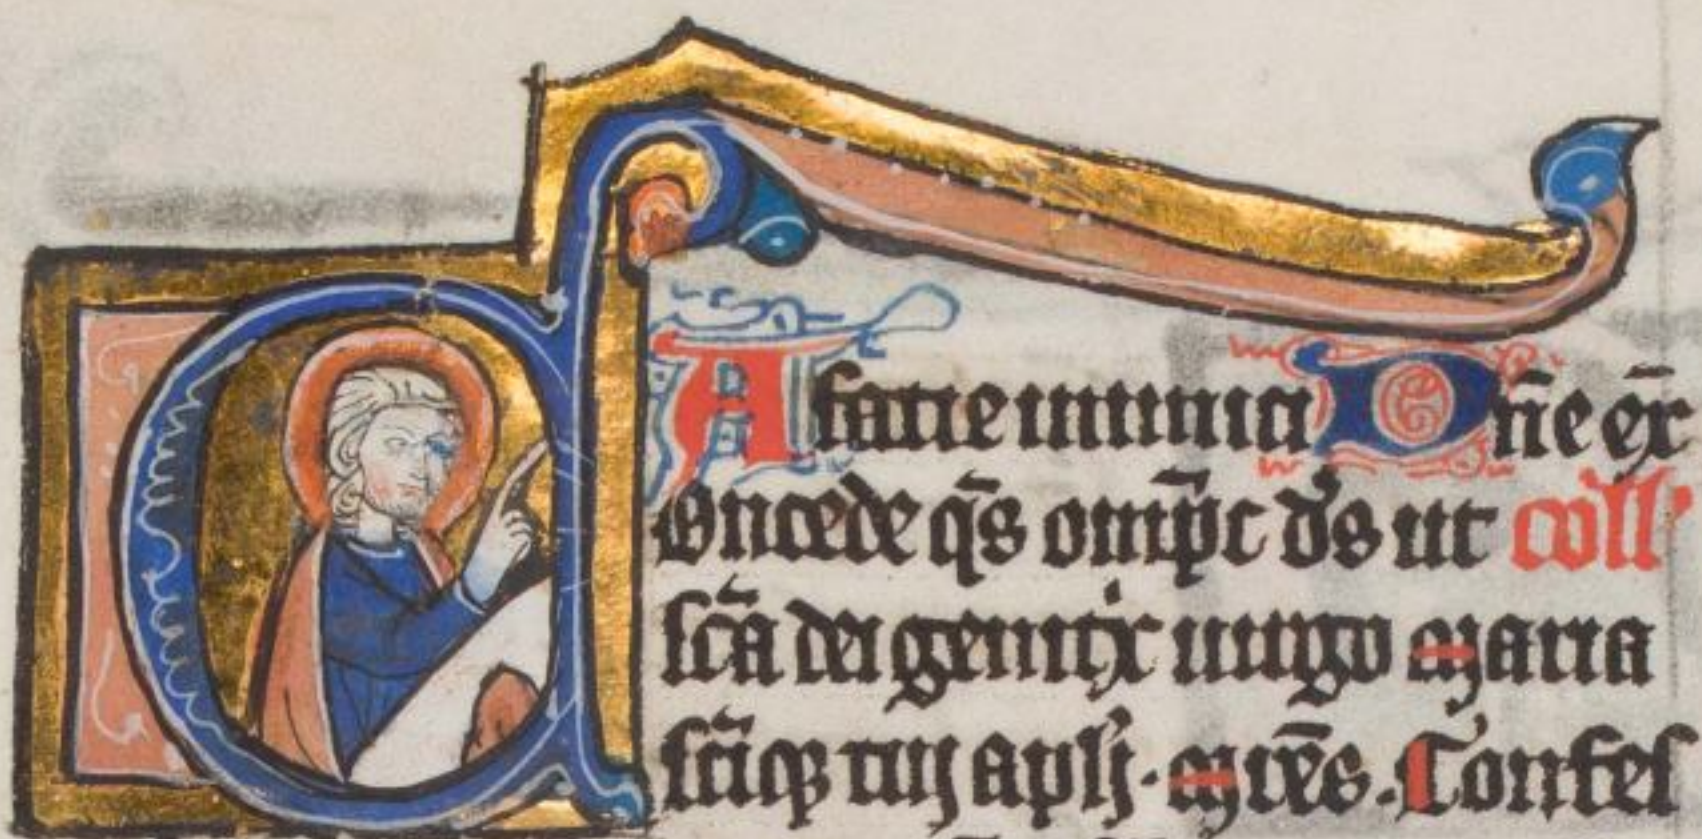 A facie inimici Dn̄e ex̄
oncede q̄s omp̄c ds̄ ut coll'
sc̄a dei genitͥx uirgo Maria
sc̄iq; tui apl̄i · Mr̄es . Confes